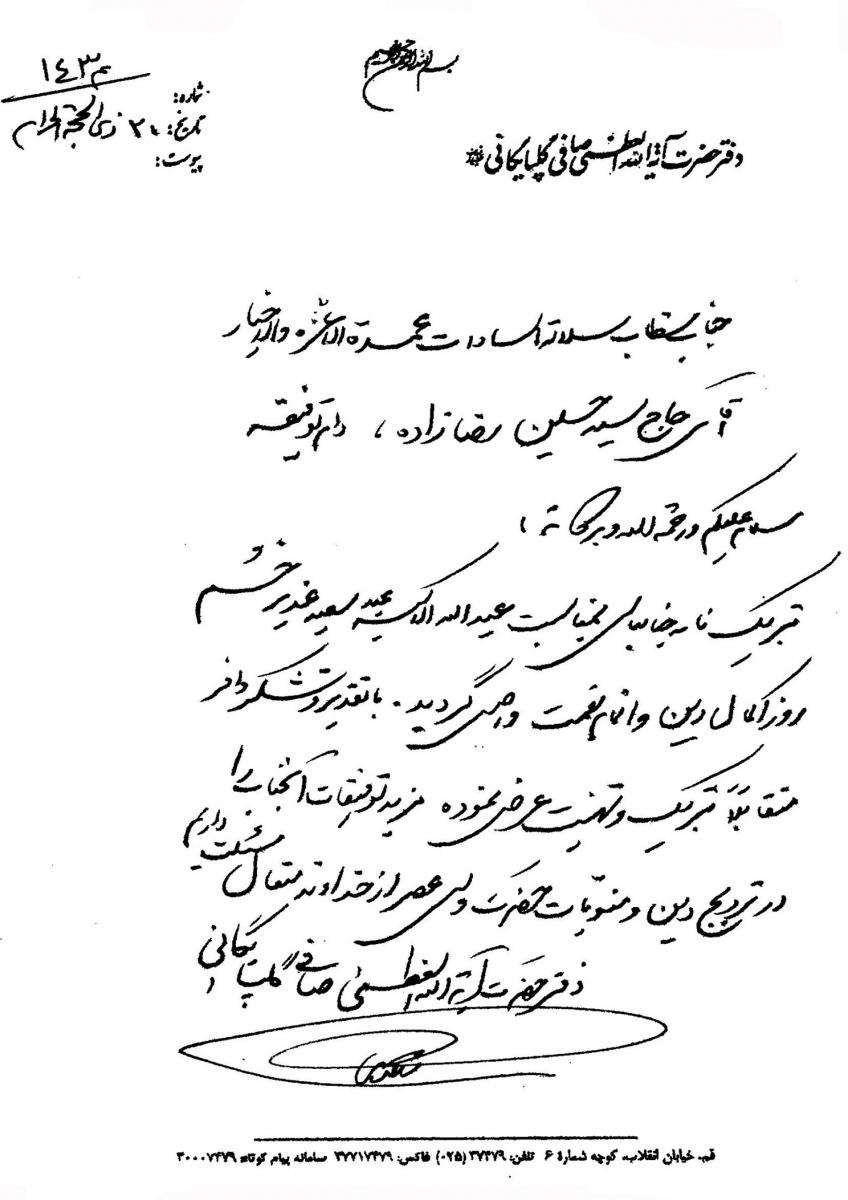 بسم الله الرحمن الرحیم
دفتر حضرت آیة الله العظمی صافی گلپایگانی
شماره: ۱٤۳۰
تاریخ: ذی الحجة الحرام
پیوست:
جناب مستطاب سلالة السادات عمدة الاعزه والاخیار
آقای حاج سید حسین رضازاده، دام توفیقه
سلام علیکم ورحمة الله وبرکاته،
تبریک نامه جنابعالی بمناسبت عیدالله الاکبر عید سعید غدیر خم
روز اکمال دین واتمام نعمت واصل گردید. با تقدیر وتشکر وافر
متقابلاً تبریک وتهنیت عرض نموده مزید توفیقات آنجناب را
در ترویج دین ومنویات حضرت ولی عصر از خداوند متعال مسئلت داریم
دفتر حضرت آیة الله العظمی صافی گلپایگانی
قم، خیابان انقلاب، کوچه شمارهٔ ۶ تلفن: ۳۷۴۷۹ (۰۲۵) فاکس: ۳۷۷۱۷۴۷۹ سامانه پیام کوتاه: ۳۰۰۰۷۴۷۹